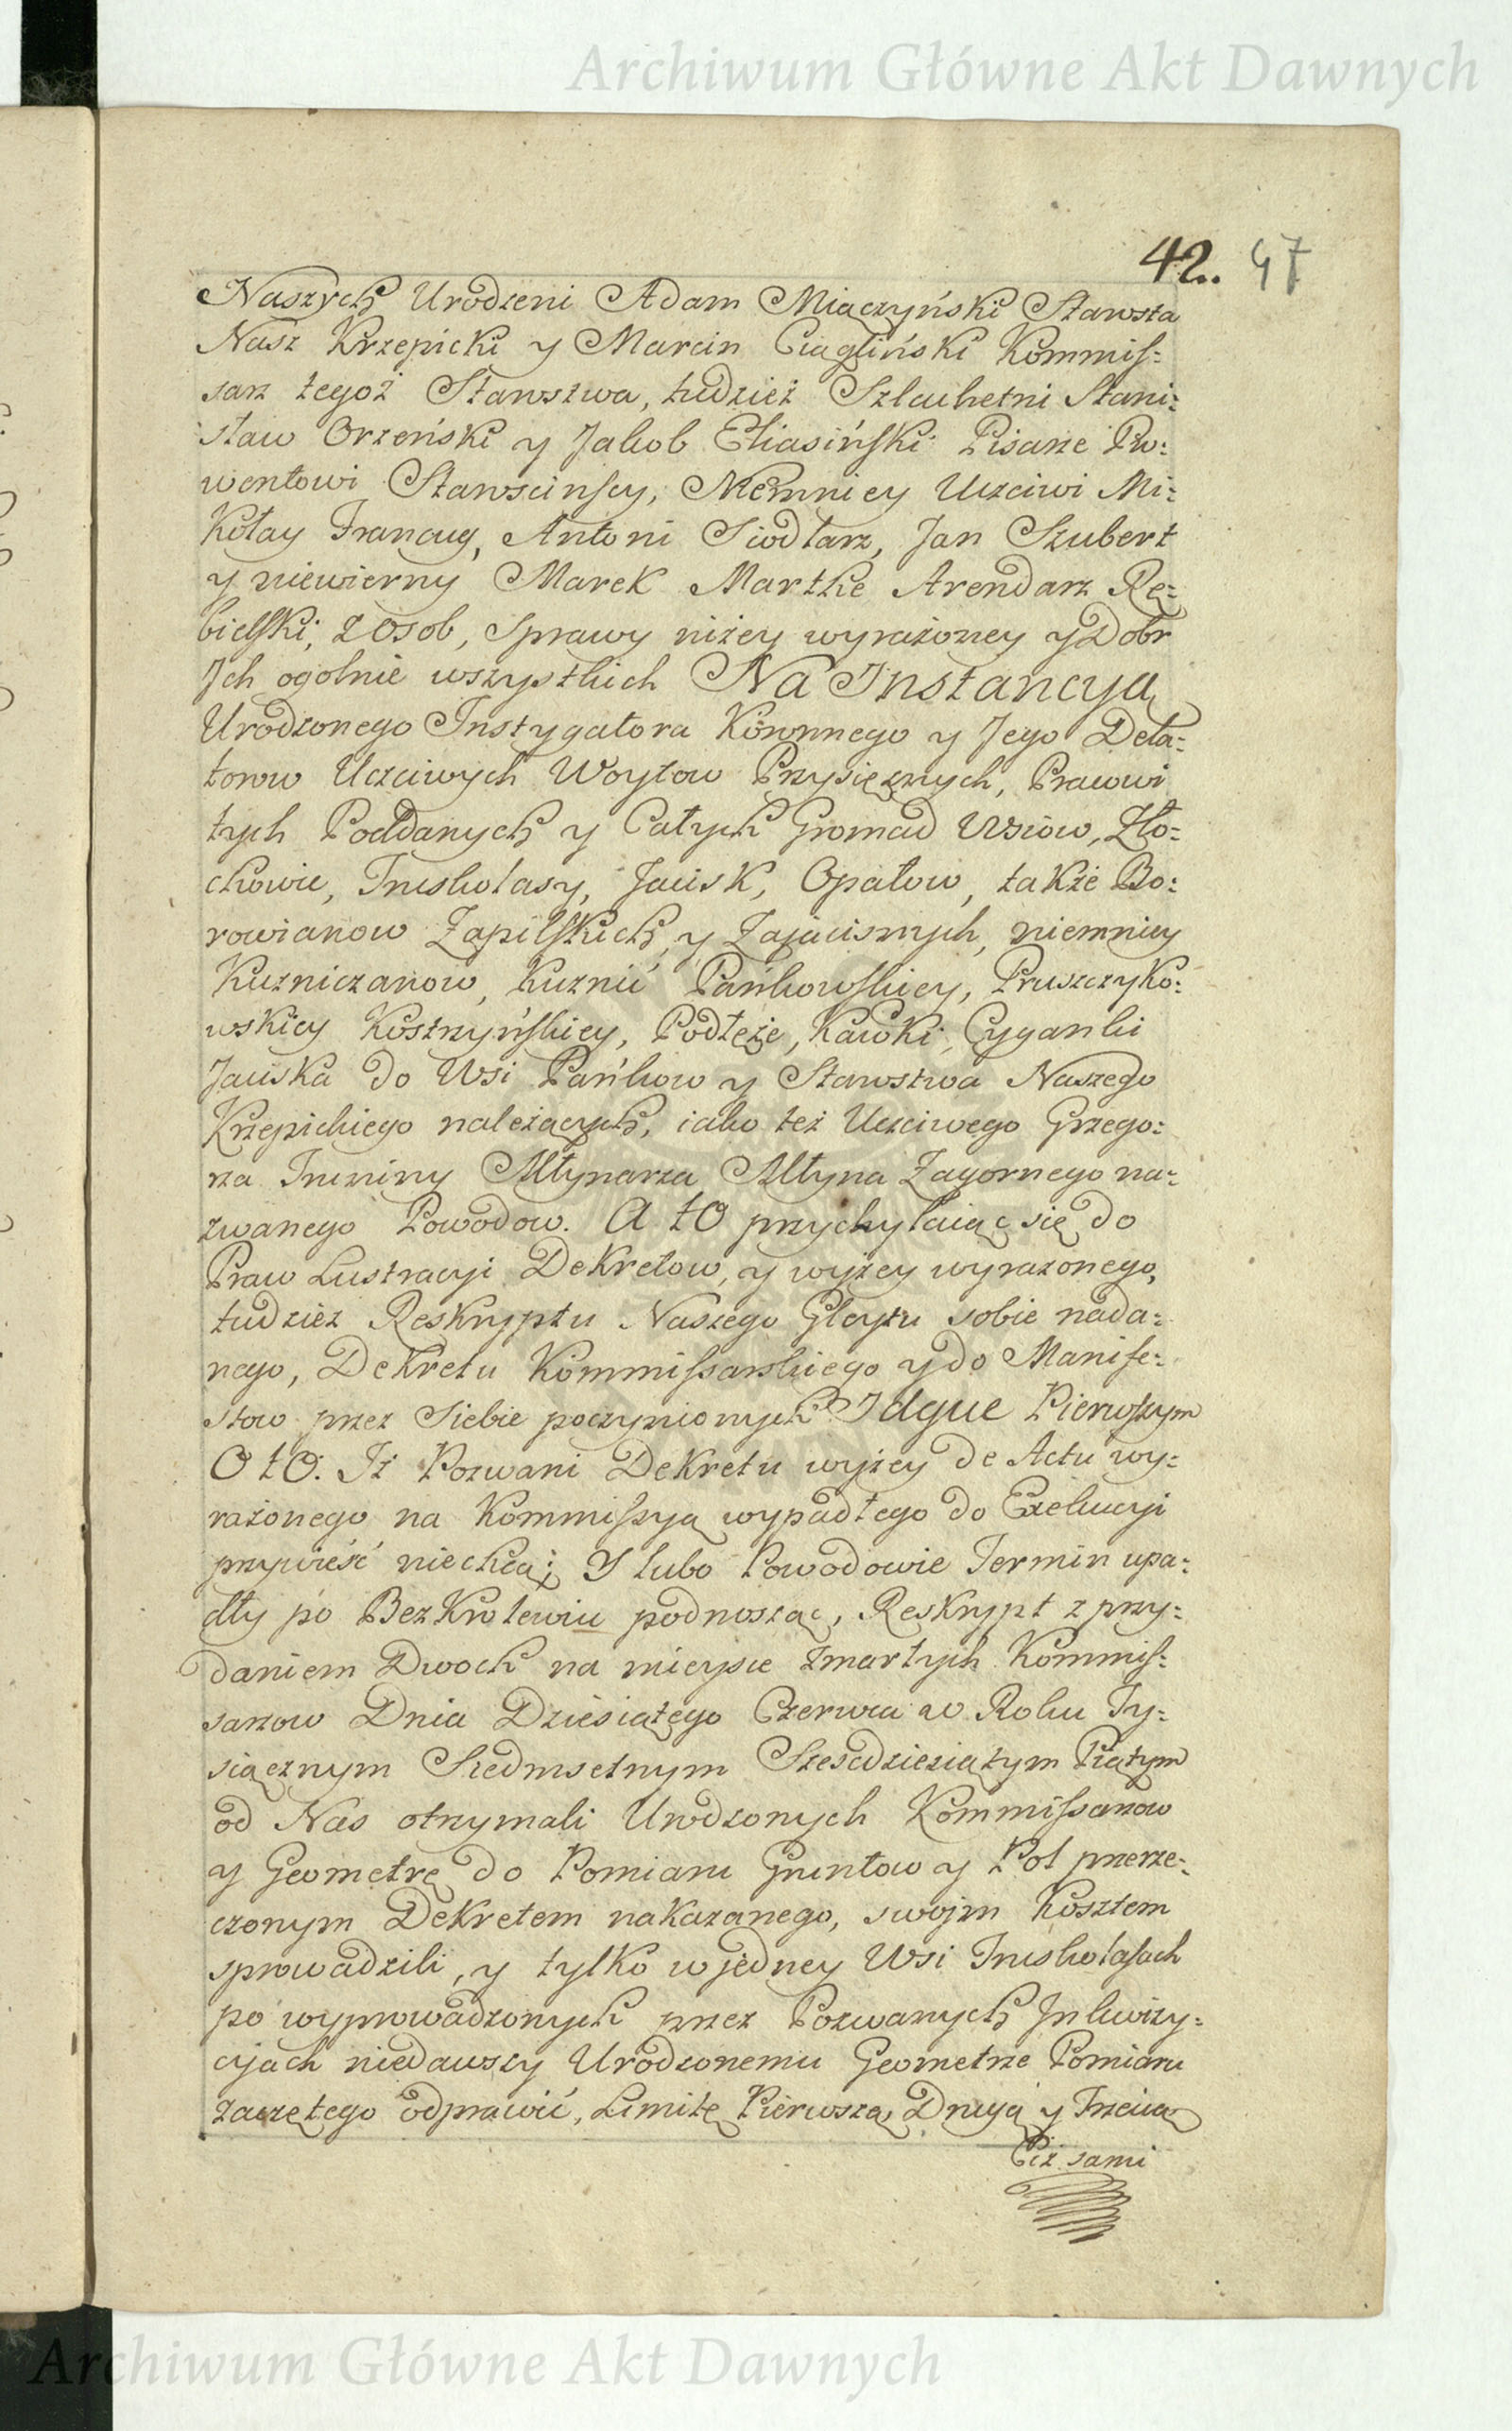 Archiwum Główne Akt Dawnych
42. 47
Naszych Urodzeni Adam Miączyński Starosta
Nasz Krzepicki y Marcin Ciągliński Kommis:
sarz tegoż Starostwa, tudzież Szlachetni Stani:
sław Orzeński y Jakob Eliasiński Pisarze Pro:
wentowi Starościnscy, Niemniey Uczciwi Mi:
kołay Francug, Antoni Siodlarz, Jan Szubert
y niewierny Marek Martke Arendarz Rę:
bielski; z Osob, Sprawy niżey wyrażoney y Dobr
Ich ogolnie wszystkich Na Instancyą
Urodzonego Instygatora Koronnego y Jego Dela:
torow Uczciwych Woytow Przysięznych, Prawowi
tych Poddanych y Całych Gromad Wsiow, Zło:
chowic, Truskolasy, Jaciska, Opatow, także Bo:
rowianow Zapilskich y Zajaciznych, niemniey
Kuzniczanow, Kuznic Pańkowskiey, Pruszczyko:
wskiey Kostrzyńskiey, Podłęże, Kawki, Cyganki
Jaciska do Wsi Pańkow y Starostwa Naszego
Krzepickiego należących, iako też Uczciwego Grzego:
rza Truziny Młynarza Młyna Zagornego na:
zwanego Powodow. A to przychylaiąc się do
Praw Lustracyi Dekretow, y wyżey wyrazonego,
tudzież Reskryptu Naszego Gleytu sobie nada:
nego, Dekretu Kommissarskiego y do Manife:
stow przez Siebie poczynionych Idque Pierwszym
O to. Iż Pozwani Dekretu wyżey de Actu wy:
rażonego na Kommissyą wypadłego do Exekucyi
przywieść niechcą; Y lubo Powodowie Termin upa:
dły po Bezkrolewiu podnosząc, Reskrypt z przy:
daniem Dwoch na mieysce zmartych Kommis:
sarzow Dnia Dziesiątego Czerwca w Roku Ty:
siącznym Siedmsetnym Sześcdziesiątym Piątym
od Nas otrzymali Urodzonych Kommissarzow
y Geometrę do Pomiaru Gruntow y Pol przerze:
czonym Dekretem nakazanego, swoim Kosztem
sprowadzili, y tylko w jedney Wsi Truskolasach
po wyprowadzonych przez Pozwanych Inkwizy:
cyjach niedawszy Urodzonemu Geometrze Pomiaru
zaczętego odprawić, Limitę Pierwszą, Drugą y Trzecią
Ciż sami
Archiwum Główne Akt Dawnych